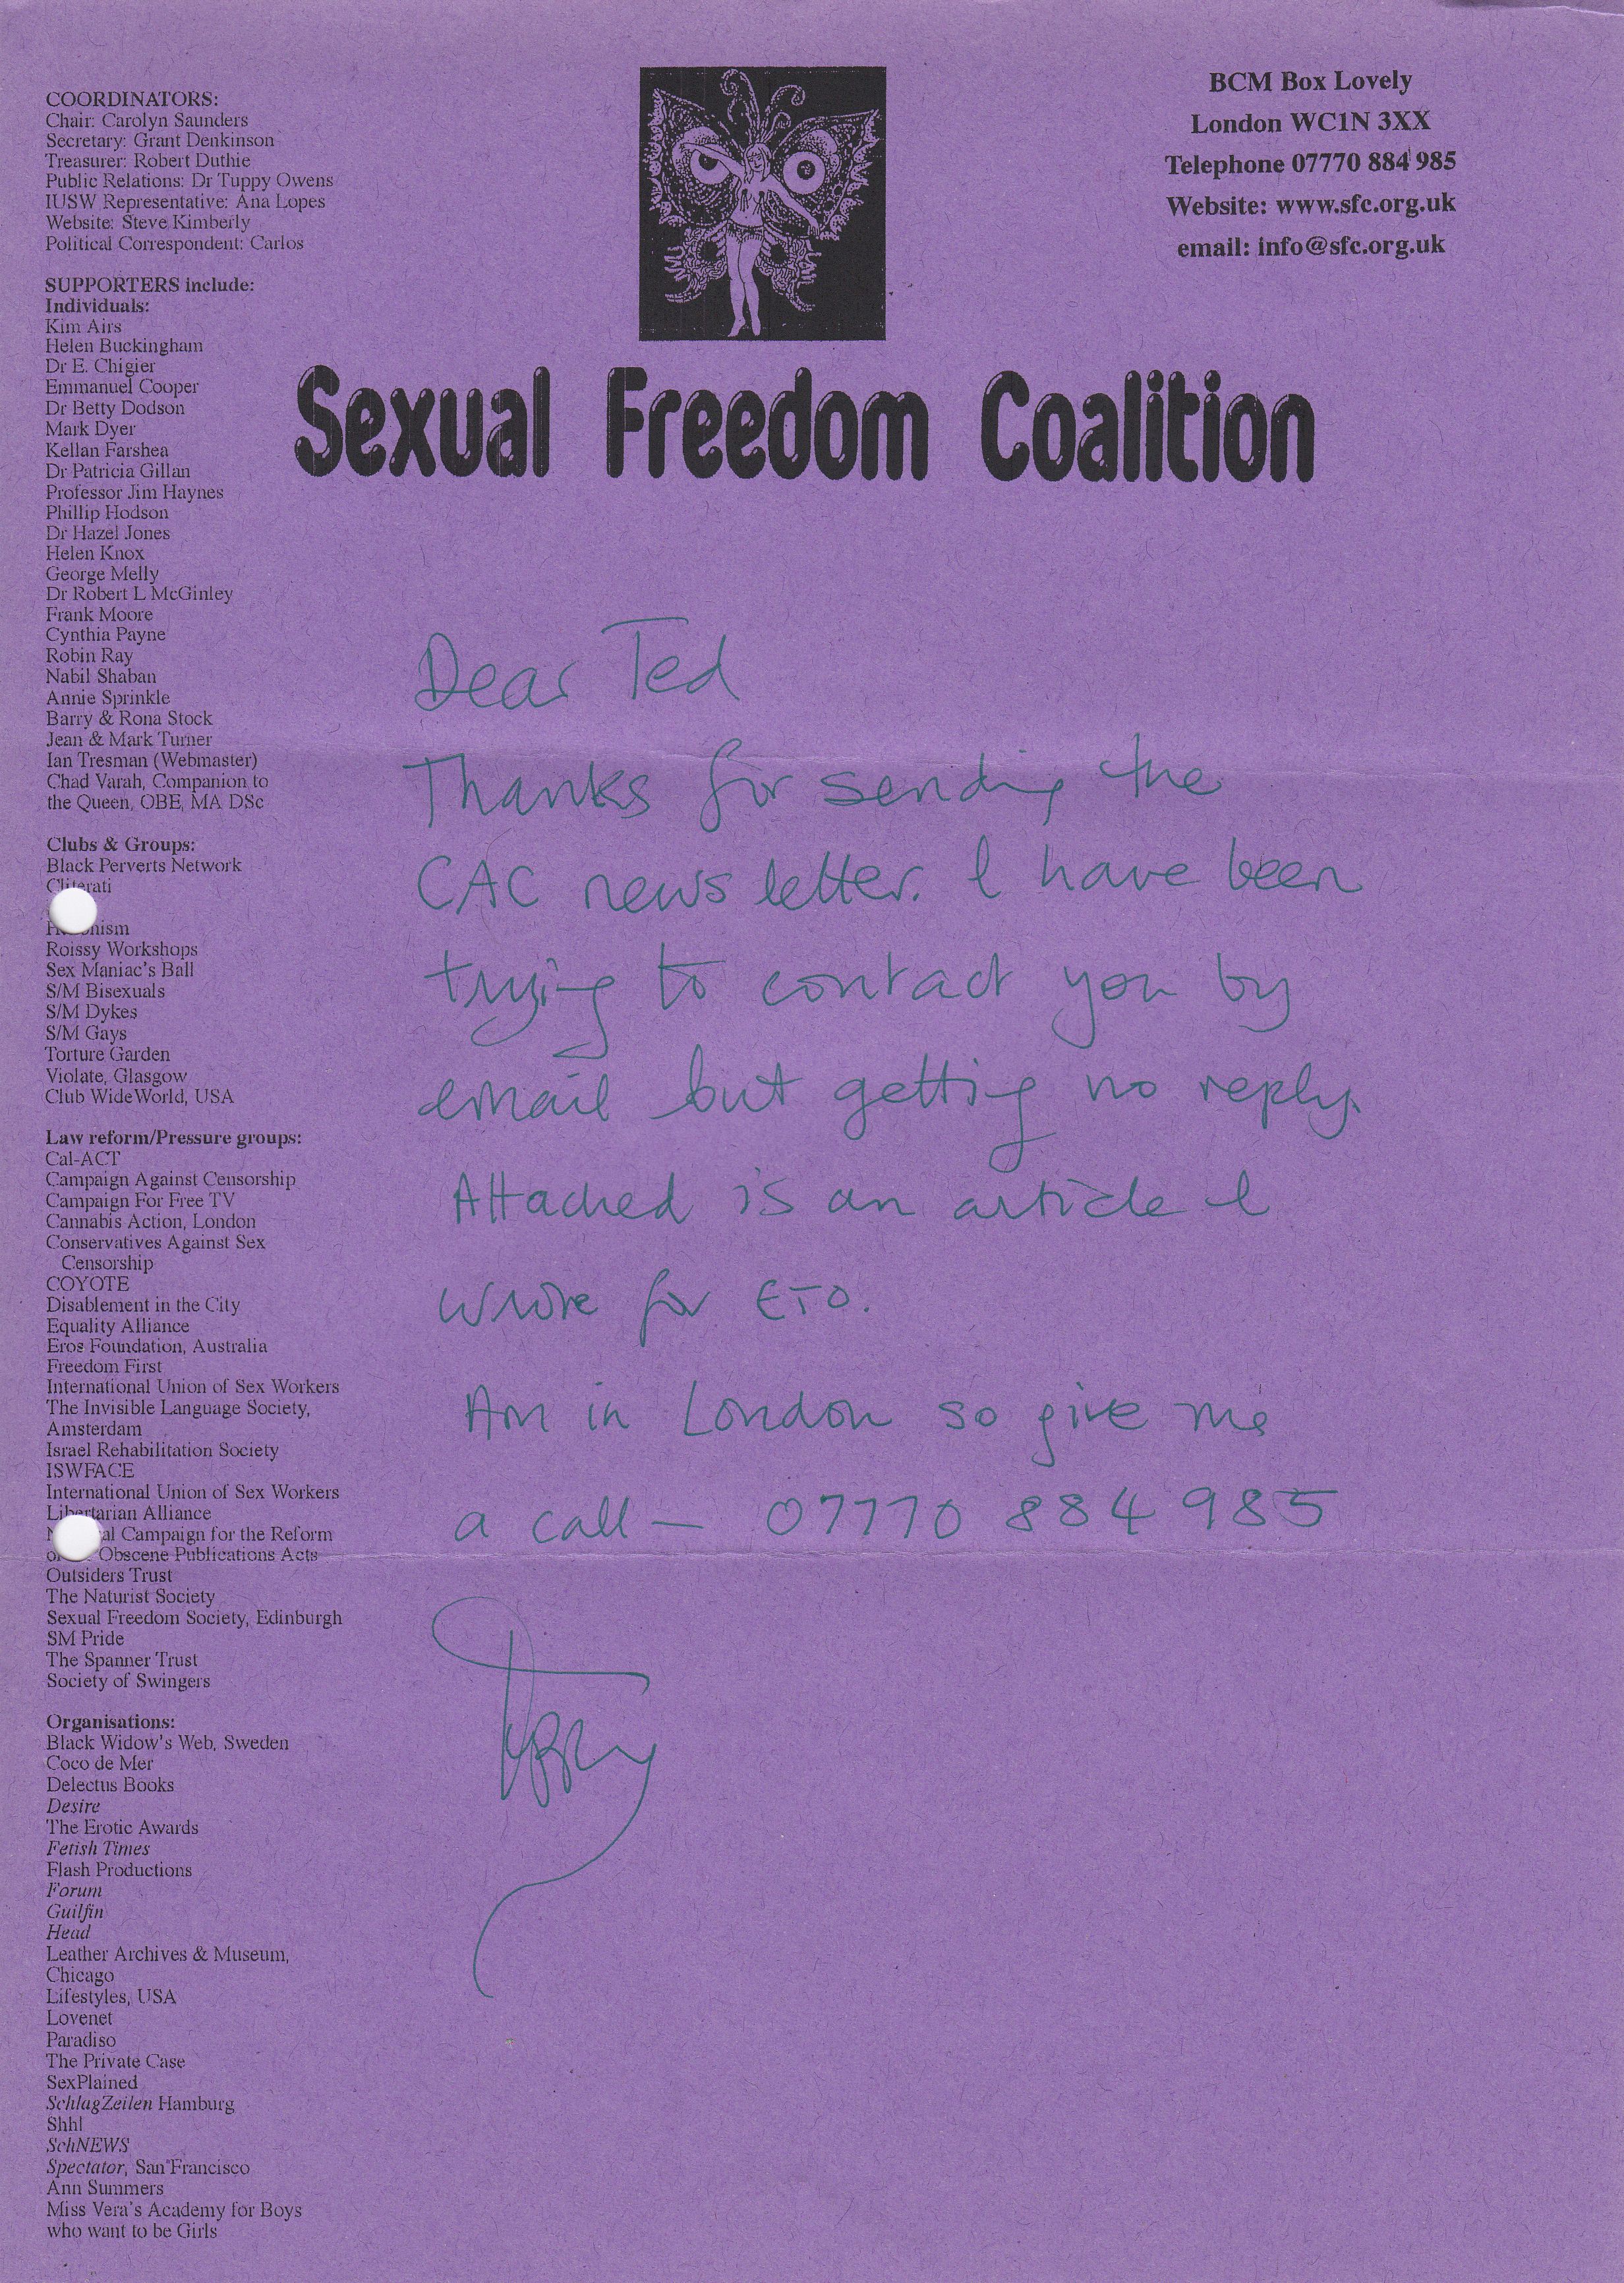 COORDINATORS:
Chair: Carolyn Saunders
Secretary: Grant Denkinson
Treasurer: Robert Duthie
Public Relations: Dr Tuppy Owens
IUSW Representative: Ana Lopes
Website: Steve Kimberly
Political Correspondent: Carlos
SUPPORTERS include:
Individuals:
Kim Airs
Helen Buckingham
Dr E. Chigier
Emmanuel Cooper
Dr Betty Dodson
Mark Dyer
Kellan Farshea
Dr Patricia Gillan
Professor Jim Haynes
Phillip Hodson
Dr Hazel Jones
Helen Knox
George Melly
Dr Robert L McGinley
Frank Moore
Cynthia Payne
Robin Ray
Nabil Shaban
Annie Sprinkle
Barry & Rona Stock
Jean & Mark Turner
Ian Tresman (Webmaster)
Chad Varah, Companion to
the Queen, OBE, MA DSc
Clubs & Groups:
Black Perverts Network
Cliterati
Roissy Workshops
Sex Maniac's Ball
S/M Bisexuals
S/M Dykes
S/M Gays
Torture Garden
Violate, Glasgow
Club WideWorld, USA
Law reform/Pressure groups:
Cal-ACT
Campaign Against Censorship
Campaign For Free TV
Cannabis Action, London
Conservatives Against Sex
Censorship
COYOTE
Disablement in the City
Equality Alliance
Eros Foundation, Australia
Freedom First
International Union of Sex Workers
The Invisible Language Society,
Amsterdam
Israel Rehabilitation Society
ISWFACE
International Union of Sex Workers
Libertarian Alliance
Campaign for the Reform
Obscene Publications Acts
Outsiders Trust
The Naturist Society
Sexual Freedom Society, Edinburgh
SM Pride
The Spanner Trust
Society of Swingers
Organisations:
Black Widow's Web, Sweden
Coco de Mer
Delectus Books
Desire
The Erotic Awards
Fetish Times
Flash Productions
Forum
Guilfin
Head
Leather Archives & Museum,
Chicago
Lifestyles, USA
Lovenet
Paradiso
The Private Case
SexPlained
SchlagZeilen Hamburg
Shh!
SchNEWS
Spectator, San Francisco
Ann Summers
Miss Vera's Academy for Boys
who want to be Girls
BCM Box Lovely
London WC1N 3XX
Telephone 07770 884 985
Website: www.sfc.org.uk
email: info@sfc.org.uk
Sexual Freedom Coalition
Dear Ted
Thanks for sending the
CAC newsletter. I have been
trying to contact you by
email but getting no reply.
Attached is an article I
wrote for ETO.
Am in London so give me
a call – 07770 884 985
Tuppy